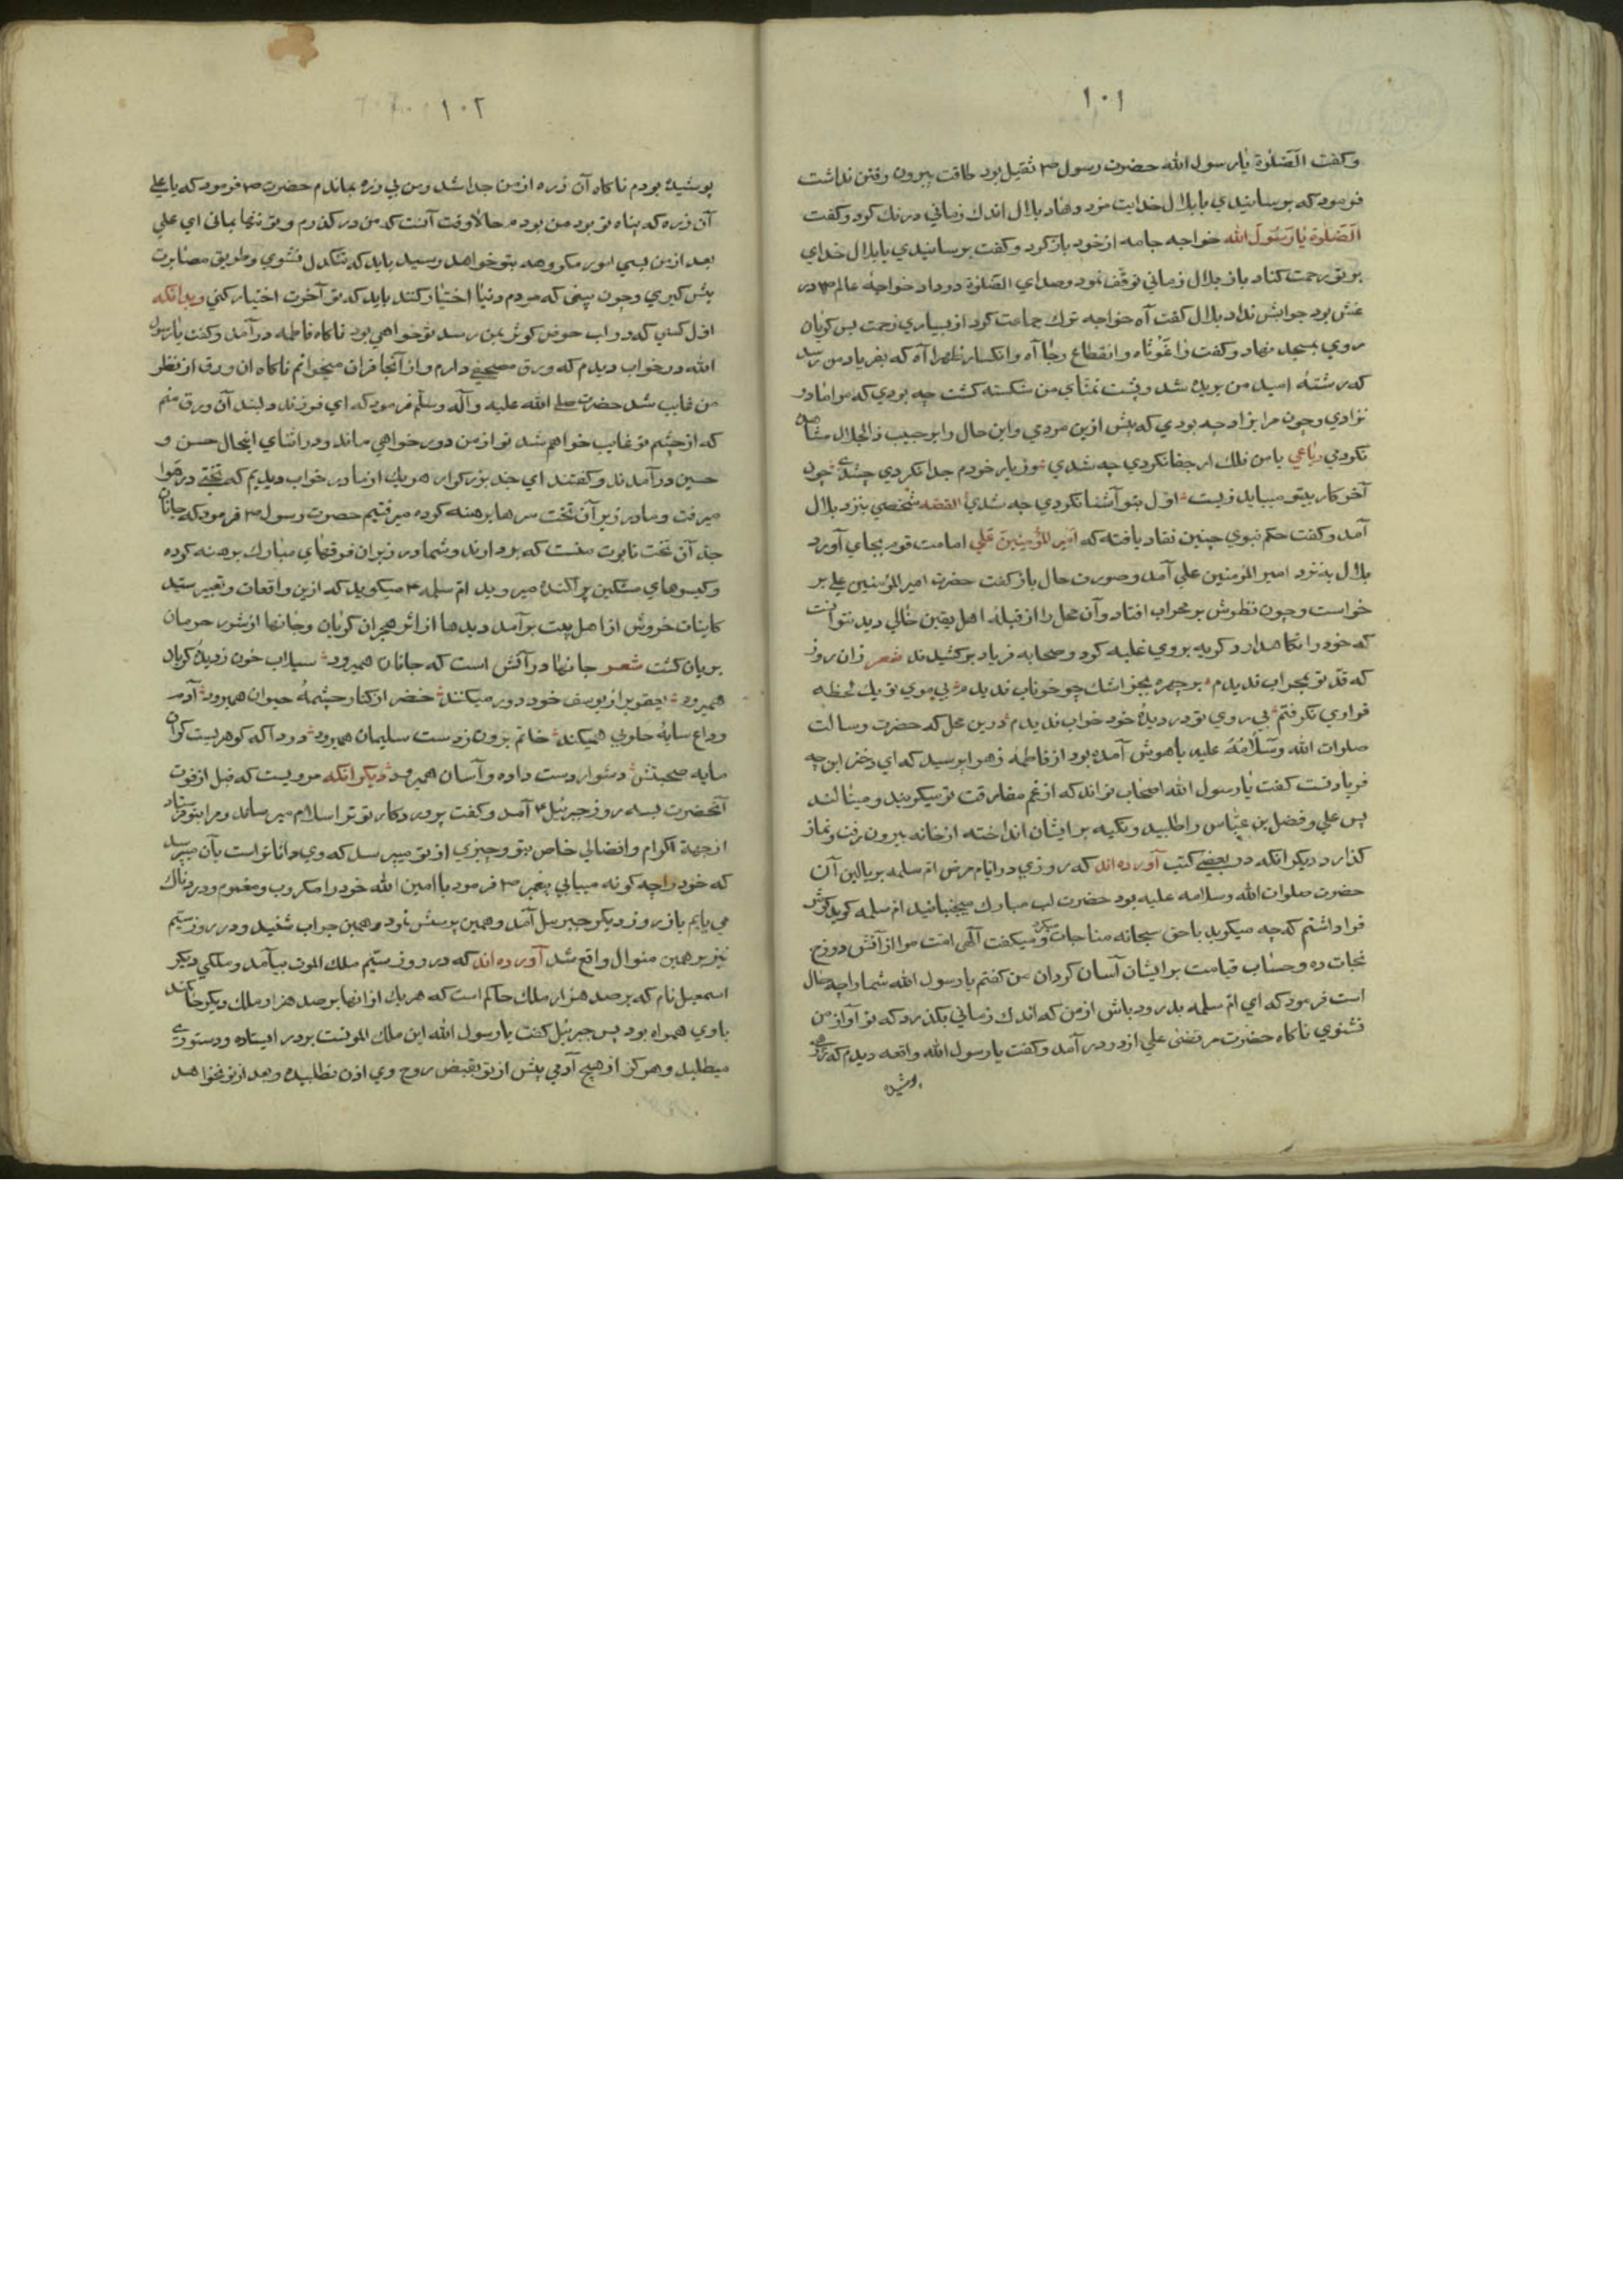 ١٠١
وكفت الصَّلوٰة يا رسول الله حضرت رسول ص ثقيل بود طاقت بيرون رفتن نداشت
فرمود كه برسانيدي يا بلال خدايت مزد دهاد بلال اندك زماني درنك كرد وكفت
الصَّلوٰة يا رَسُولَ الله خواجه جامه از خود باز كرد وكفت برسانيدي يا بلال خداي
بر تو رحمت كناد باز بلال زماني توقّف نمود وصداي الصَّلوة در داد خواجهٔ عالم ص در
غش بود جوابش نداد بلال كفت آه خواجه ترك جماعت كرد از بسياري زحمت پس كريان
روي بمسجد نهاد وكفت واغَوْثاه وانقطاع رجا آه وانكسار ظهرا آه كه بفرياد من رسد
كه رشتهٔ اميد من بريده شد وپشت تمنّاي من شكسته كشت چه بودي كه مرا مادر
نزادي وچون مرا بزاد چه بودي كه پيش ازين مردي واين حال را بر حبيب ذالجلال مشاهده
نكردمي رباعي با من فلك ار جفا نكردي چه شدي وز يار خودم جدا نكردي چه شدي چون
آخر كار بيتو ميبايد زيست اوّل بتو آشنا نكردي چه شدي القصه شخصي بنزد بلال
آمد وكفت حكم نبوي چنين نفاد يافته كه امير المؤمنين علي امامت قوم بجاي آورد
بلال بنزد امير المؤمنين علي آمد وصورت حال باز كفت حضرت امير المؤمنين علي بر
خواست وچون نظرش بر محراب افتاد وآن محل را از قبلهٔ اهل يقين خالي ديد نتوانست
كه خود را نكاهدارد كريه بر وي غلبه كرد وصحابه فرياد بر كشيدند شعر زان روز
كه قدّ تو بمحراب نديدم بر چهره بجز اشك چو خوناب نديدم بي موي تو يك لحظه
قراري نكرفتم بي روي تو در ديدهٔ خود خواب نديدم درين محل كه حضرت رسالت
صلوات الله وسَلامُهُ عليه باهوش آمده بود از فاطمهٔ زهرا پرسيد كه اي دختر اين چه
فريادست كفت يا رسول الله اصحاب تواند كه از غم مفارقت تو ميكريند ومينالند
پس علي وفضل بن عبّاس را طلبيد وتكيه بر ايشان انداخته از خانه بيرون رفت ونماز
كذارد ديكر انكه در بعضي كتب آورده‌اند كه روزي در ايام مرض ام سلمه بر بالين آن
حضرت صلوات الله وسلامه عليه بود حضرت لب مبارك ميجنبانيد ام سلمه كويد كوش
فرا داشتم كه چه ميكويد با حق سبحانه مناجات ميكرد وميكفت الٓهي امّت مرا از آتش دوزخ
نجات ده وحساب قيامت بر ايشان آسان كردان من كفتم يا رسول الله شما را چه حال
است فرمود كه اي ام سلمه بدرود باش از من كه اندك زماني بكذرد كه تو آواز من
نشنوي ناكاه حضرت مرتضى علي از در در آمد وكفت يا رسول الله واقعه ديدم كه زرهي
پوشيده
١٠٢
پوشيده بودم ناكاه آن زره از من جدا شد ومن بي زره بماندم حضرت ص فرمود كه يا علي
آن زره كه پناه تو بود من بودم حالا وقت آنست كه من در كذرم وتو تنها بماني اي علي
بعد از من بسي امور مكروهه بتو خواهد رسيد بايد كه تنكدل نشوي وطريق مصابرت
پيش كيري وچون بيني كه مردم دنيا اختيار كنند بايد كه تو آخرت اختيار كني وبدانكه
اول كسي كه در لب حوض كوثر بمن رسد تو خواهي بود ناكاه فاطمه در آمد وكفت يا رسول
الله در خواب ديدم كه ورق مصحفي دارم واز آنجا قران ميخوانم ناكاه ان ورق از نظر
من غايب شد حضرت صلي الله عليه وآله وسلّم فرمود كه اي فرزند دلبند آن ورق منم
كه از چشم تو غايب خواهم شد تو از من دور خواهي ماند ودر اثناي اينحال حسن و
حسين در آمدند وكفتند اي جد بزركوار هر يك از ما در خواب ديديم كه تختي در هوا
ميرفت وما در زير آن تخت سرها برهنه كرده ميرفتيم حضرت رسول ص فرمود كه جانان
جد آن تخت تابوت منست كه بردارند وشما در زير ان فرقهاي مبارك برهنه كرده
وكيسوهاي مشكين پراكنده ميرويد ام سلمه ميكويد كه ازين واقعات وتعبير سيد
كاينات خروش از اهل بيت بر آمد ديدها از اثر هجران كريان وجانها از شور حرمان
بريان كشت شعر جانها در آتش است كه جانان هميرود سيلاب خون ز ديدهٔ كريان
هميرود يعقوب از يوسف خود دور ميكنند خضر از كنار چشمهٔ حيوان هميرود آدم
وداع سايهٔ طوبي هميكند خاتم برون ز دست سليمان هميرود دردا كه كوهريست كران
مايه صحبتش دشوار دست داده وآسان هميرود ديكر انكه مرويست كه قبل از فوت
آنحضرت بسه روز جبرئيل آمد وكفت پروردكار تو ترا سلام ميرساند ومرا بتو فرستاد
از جهة اكرام وافضالي خاص بتو وچيزي از تو ميپرسد كه وي داناتر است بآن ميپرسد
كه خود را چه كونه مييابي پيغمبر ص فرمود يا امين الله خود را مكروب ومغموم ودردناك
مي يابم باز روز ديكر جبرئيل آمد وهمين پرسش نمود وهمين جواب شنيد ودر روز سيّم
نيز بر همين منوال واقع شد آورده‌اند كه در روز سيّم ملك الموت بيامد وملكي ديكر
اسمعيل نام كه بر صد هزار ملك حاكم است كه هر يك از انها بر صد هزار ملك ديكر حاكمند
با وي همراه بود پس جبرئيل كفت يا رسول الله اين ملك الموتست بر در ايستاده ودستوري
ميطلبد وهركز از هيچ آدمي پيش از تو بقبض روح وي اذن نطلبيده وبعد از تو نخواهد